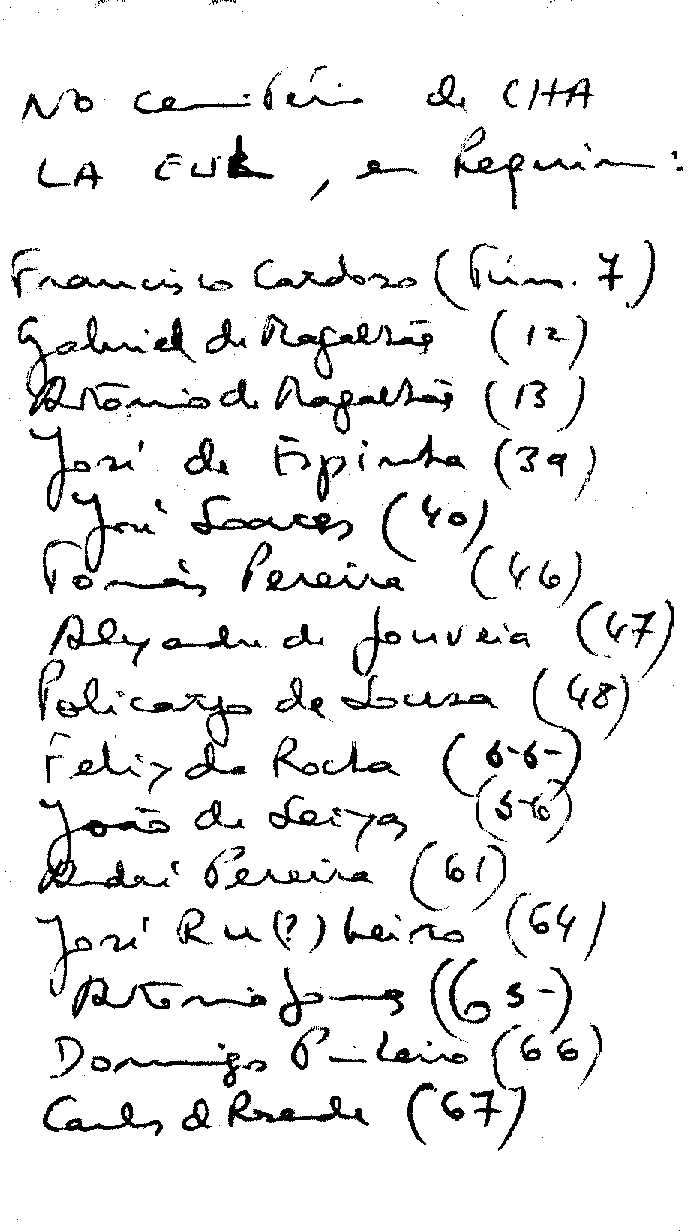 No cemitério de CHA
LA EUL, em Pequim:
Francisco Cardoso (Túm. 7)
Gabriel de Magalhães (12)
António de Magalhães (13)
José de Espinha (39)
José Soares (40)
Tomás Pereira (46)
Alexandre de Gouveia (47)
Policarpo de Sousa (48)
Felix da Rocha (55)
João de Seixas (56)
André Pereira (61)
José Ru(?)beiro (64)
António Gomes (65)
Domingos Pinheiro (66)
Carlos d Resende (67)